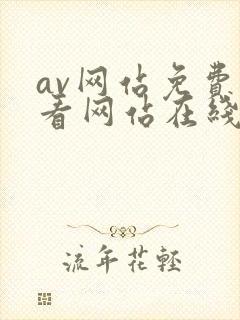 av网站免费
看网站在线
流年花轻